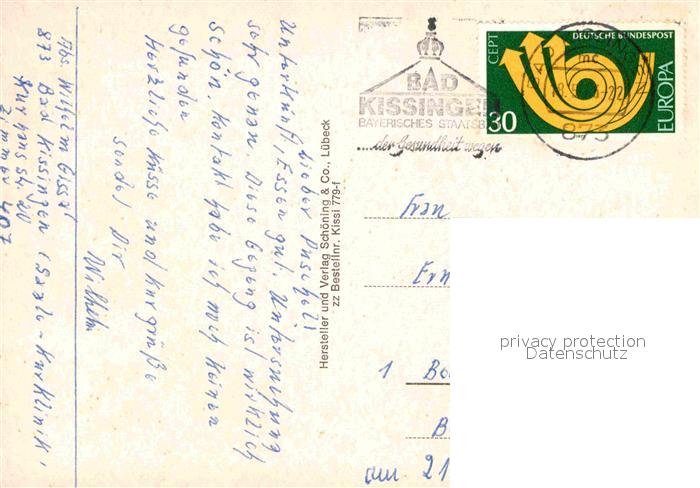 Lieber Puschel!
Unterkunft, Essen gut. Untersuchung
sehr genau. Diese Gegend ist wirklich
schön. Kontakt habe ich noch keinen
gefunden
Herzliche Küsse und Kurgrüße
sendet Dir
Wilhelm
Abs. Wilhelm
873 Bad Kissingen (Saale-Kurklinik)
Kurhausstr. 20
Zimmer 407
Hersteller und Verlag Schöning & Co., Lübeck
zz Bestellnr. Kissi 779-f
BAD
KISSINGEN
BAYERISCHES STAATSB
....der Gesundheit wegen
DEUTSCHE BUNDESPOST
CEPT
EUROPA
30
873
Frau
1 B
21
privacy protection
Datenschutz